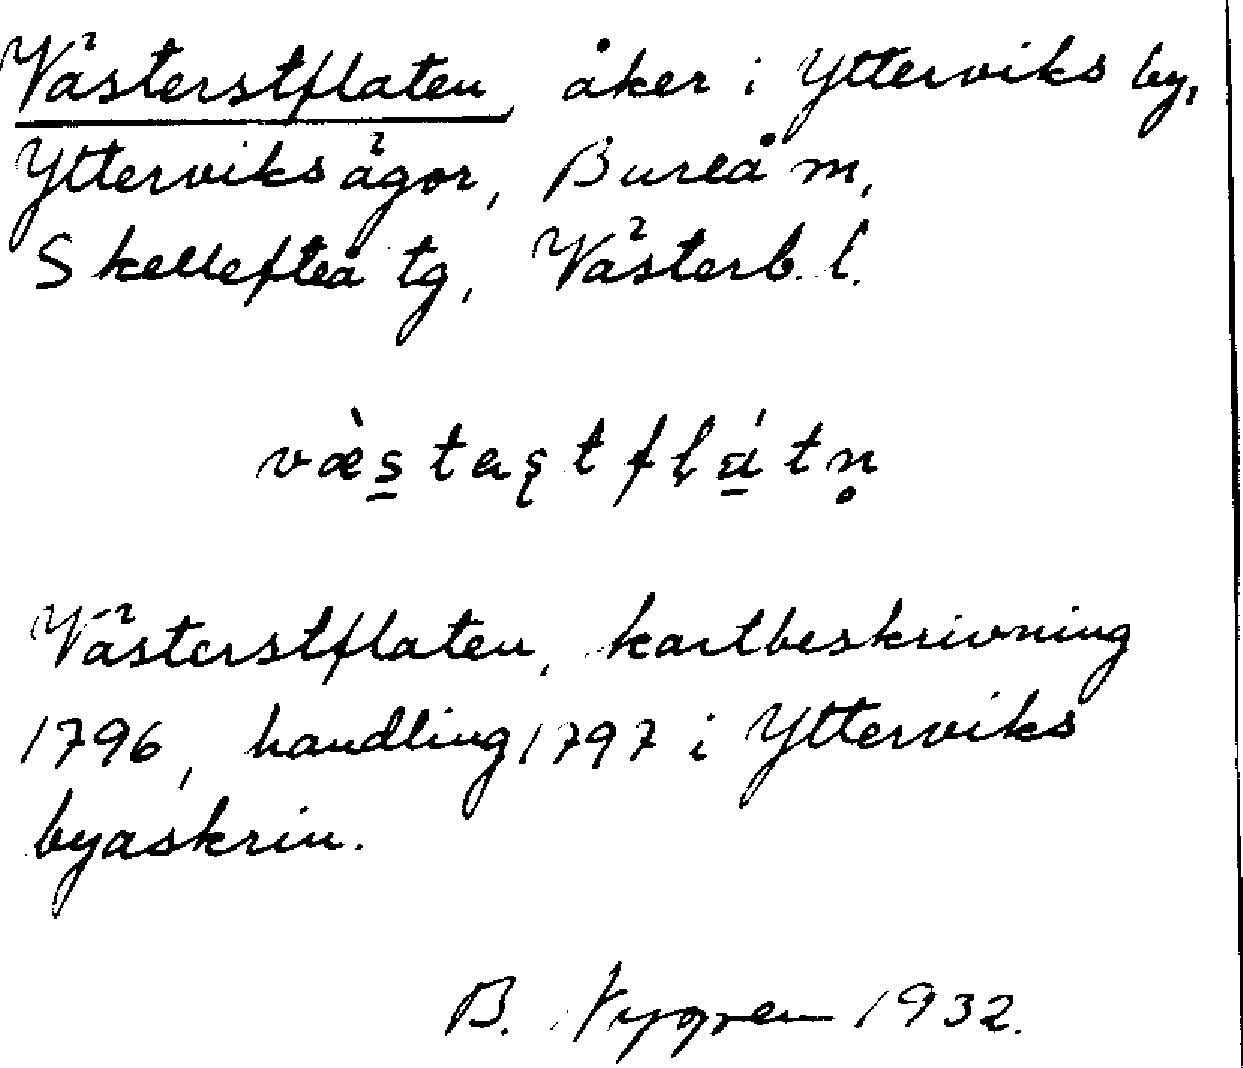 Västerstflaten, åker i Ytterviks by,
Ytterviks ägor, Bureå m,
Skellefteå tg, Västerb. l.
væ̀s̲taʂtfḷá̲tṇ
Västerstflaten, kartbeskrivning
1796, handling 1797 i Ytterviks
byaskrin.
B. Nygren 1932.